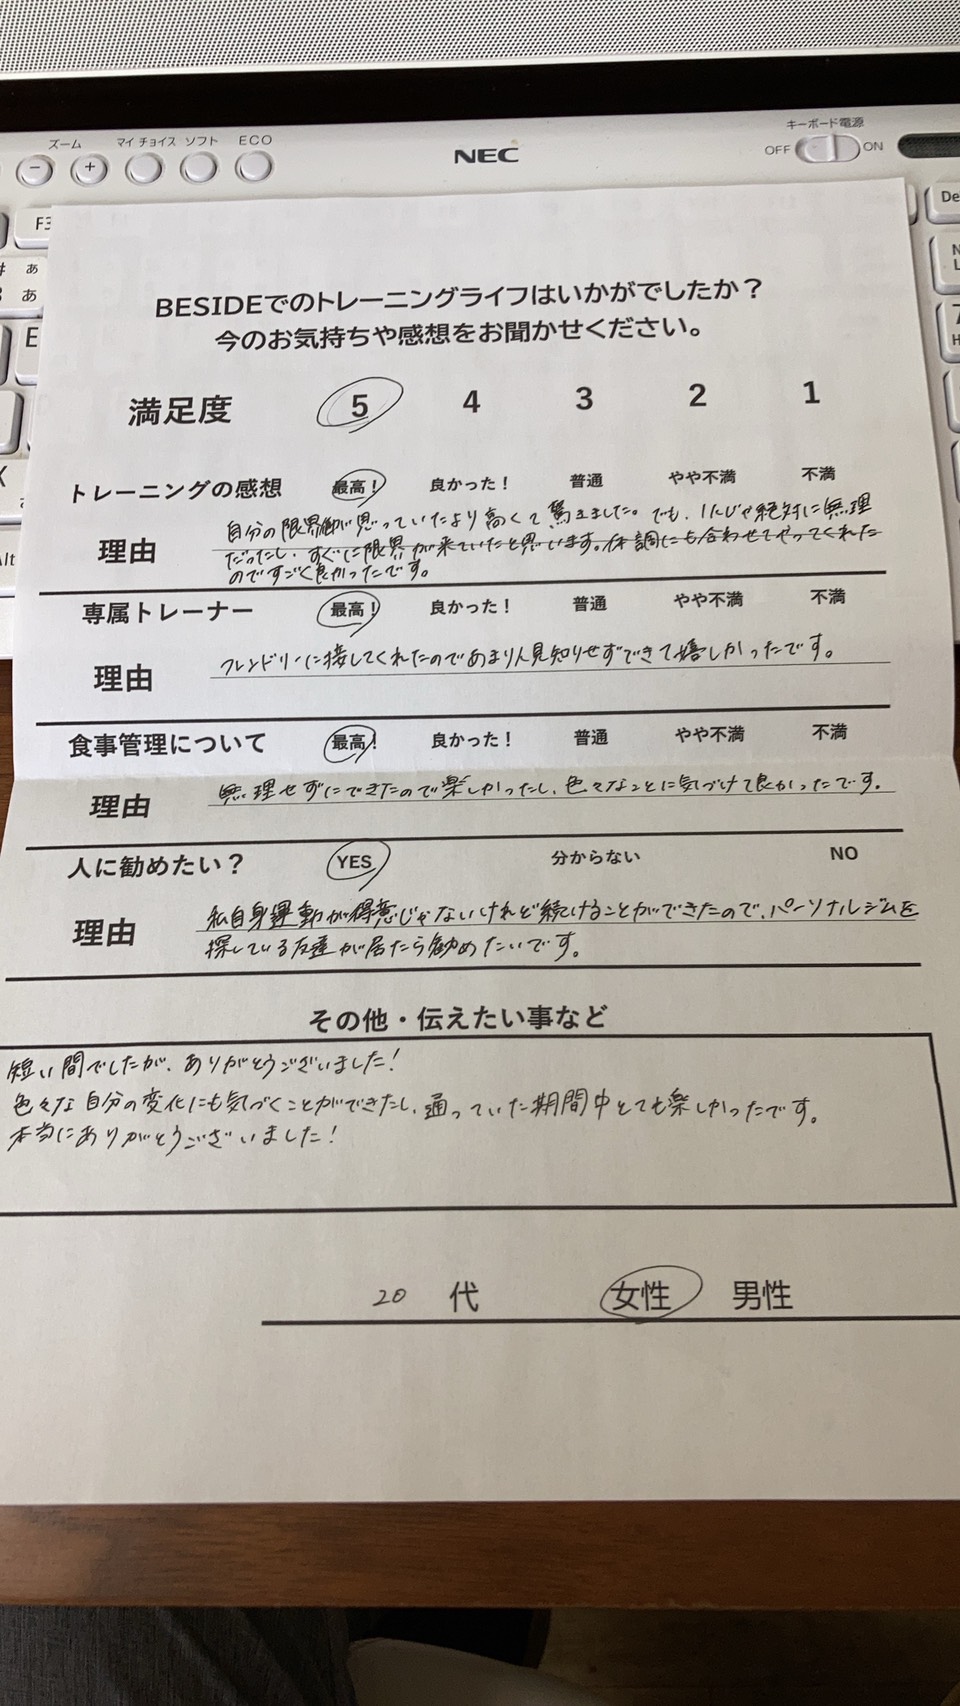 ズーム マイ チョイス ソフト ECO
− +
NEC
キーボード電源
OFF ON
F3
De
# あ
あ
E
Alt
BESIDEでのトレーニングライフはいかがでしたか？
今のお気持ちや感想をお聞かせください。
満足度 5 4 3 2 1
トレーニングの感想 最高！ 良かった！ 普通 やや不満 不満
理由
自分の限界が思っていたより高くて驚きました。でも、1人じゃ絶対に無理
だったし、すぐに限界が来ていたと思います。体調にも合わせてやってくれた
のですごく良かったです。
専属トレーナー 最高！ 良かった！ 普通 やや不満 不満
理由 フレンドリーに接してくれたのであまり人見知りせずできて嬉しかったです。
食事管理について 最高！ 良かった！ 普通 やや不満 不満
理由 無理せずにできたので楽しかったし、色々なことに気づけて良かったです。
人に勧めたい？ YES 分からない NO
理由 私自身運動が得意じゃないけれど続けることができたので、パーソナルジムを
探している友達が居たら勧めたいです。
その他・伝えたい事など
短い間でしたが、ありがとうございました！
色々な自分の変化にも気づくことができたし、通っていた期間中とても楽しかったです。
本当にありがとうございました！
20 代 女性 男性